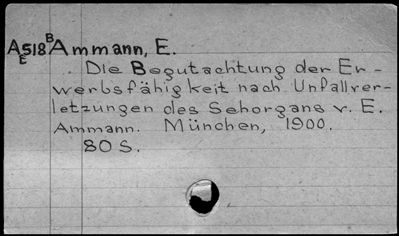 B
A518 Ammann, E.
E
Die Begutachtung der Er-
werbsfähigkeit nach Unfallver-
letzungen des Sehorgans v. E.
Ammann. München, 1900.
80 S.